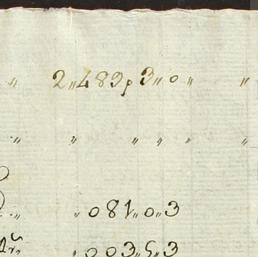 〃 2〃483p3〃0〃 〃
〃 〃 〃 〃 〃 〃
〃 〃081〃0〃3
〃003〃5〃3